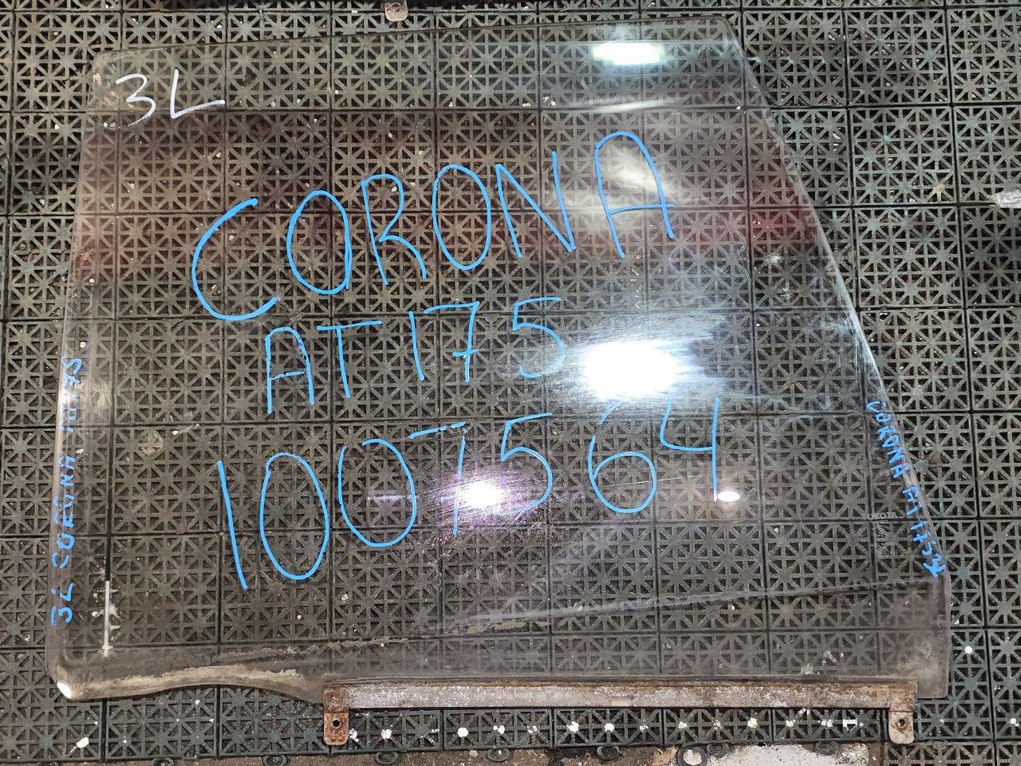 3L
CORONA
AT175
1007564
3L CORONA AT175
CORONA AT175 3L